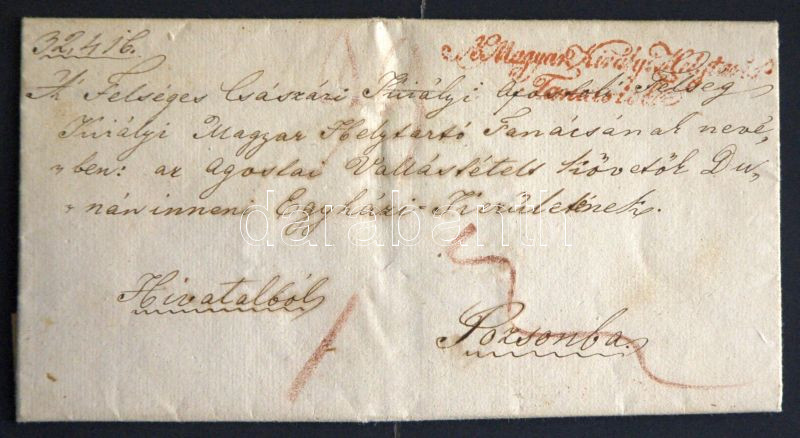 32,416.
A Magyar Királyi Helytartó
Tanátstól
A Felséges Császári Királyi Apostoli Felség
Királyi Magyar Helytartó Tanácsának nevé-
-ben: az Ágostai Vallástételt Követők Du-
-nán inneni Egyházi-Kerületének.
Hivatalból
Pozsonba.
darabanth